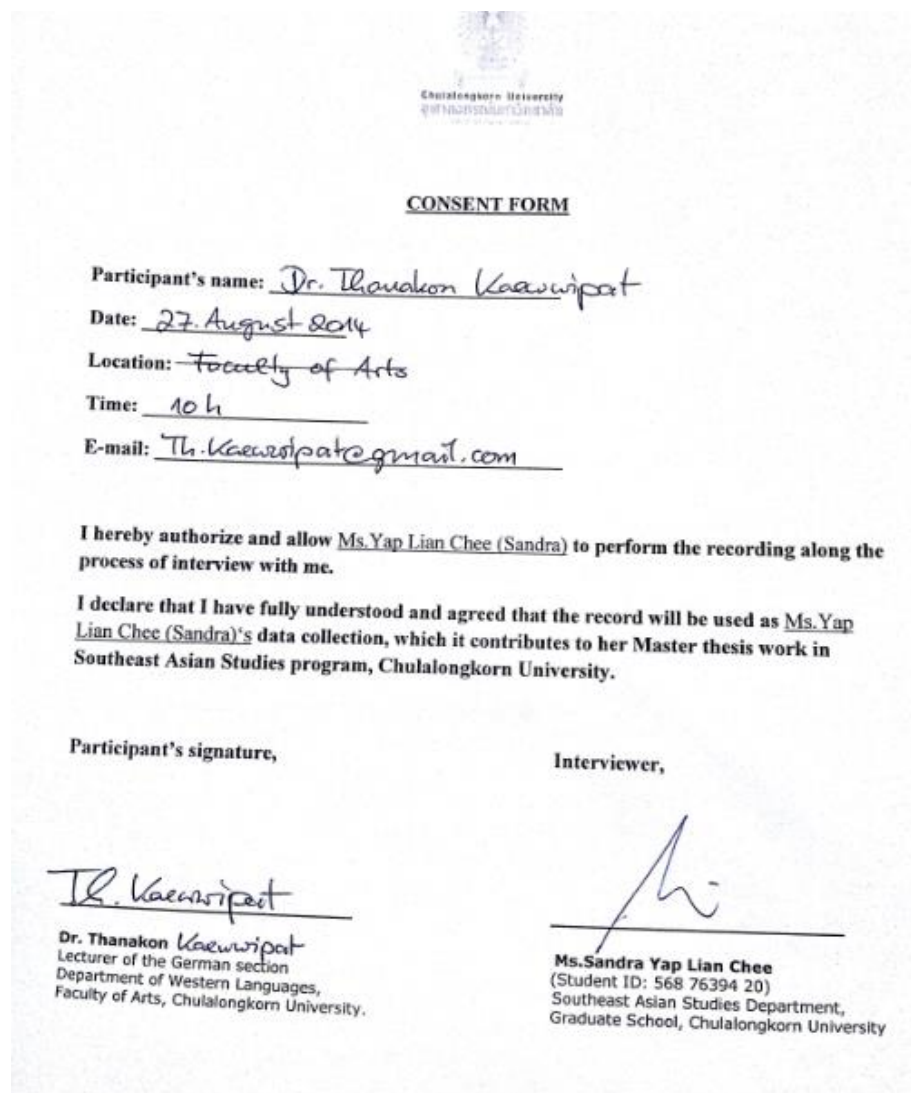 Chulalongkorn University
จุฬาลงกรณ์มหาวิทยาลัย
CONSENT FORM
Participant's name: Dr. Thanakon Kaewwipat
Date: 27. August 2014
Location: Faculty of Arts
Time: 10 h
E-mail: Th.Kaewwipat@gmail.com
I hereby authorize and allow Ms.Yap Lian Chee (Sandra) to perform the recording along the
process of interview with me.
I declare that I have fully understood and agreed that the record will be used as Ms.Yap
Lian Chee (Sandra)'s data collection, which it contributes to her Master thesis work in
Southeast Asian Studies program, Chulalongkorn University.
Participant's signature,
Interviewer,
Th. Kaewwipat
Dr. Thanakon Kaewwipat
Lecturer of the German section
Department of Western Languages,
Faculty of Arts, Chulalongkorn University.
Ms.Sandra Yap Lian Chee
(Student ID: 568 76394 20)
Southeast Asian Studies Department,
Graduate School, Chulalongkorn University